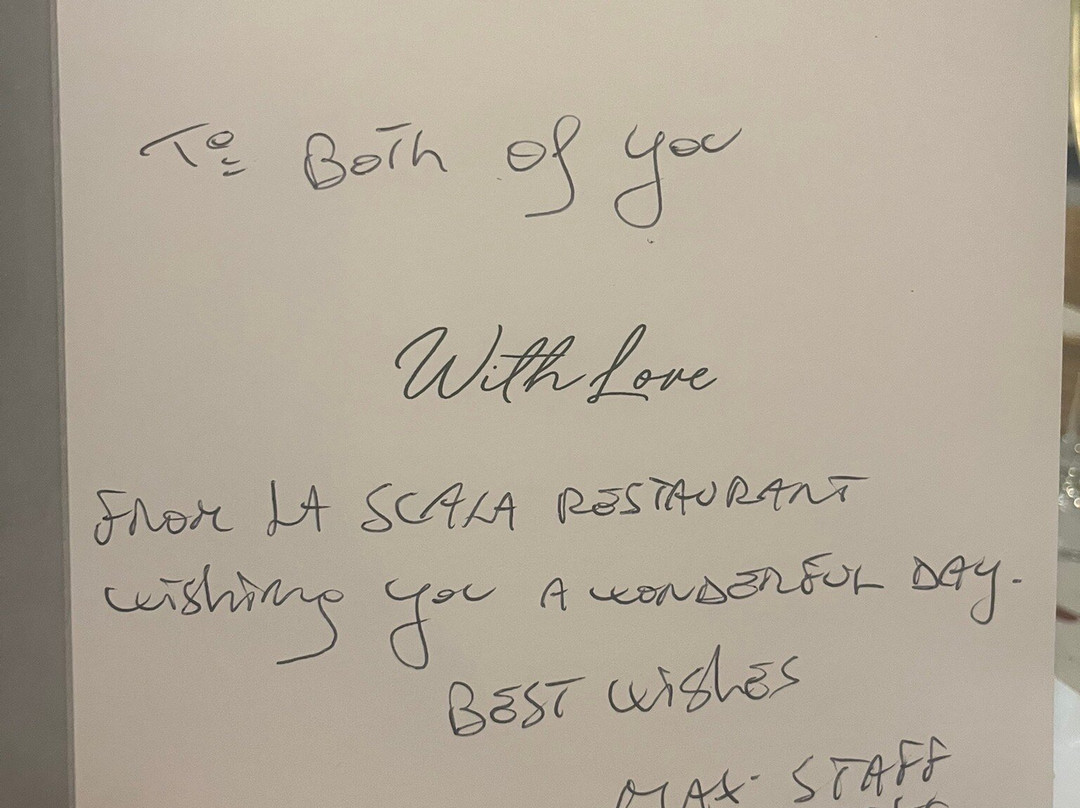 To Both of you
With Love
From LA SCALA RESTAURANT
wishing you A WONDERFUL DAY.
BEST wishES
MAX STAFF